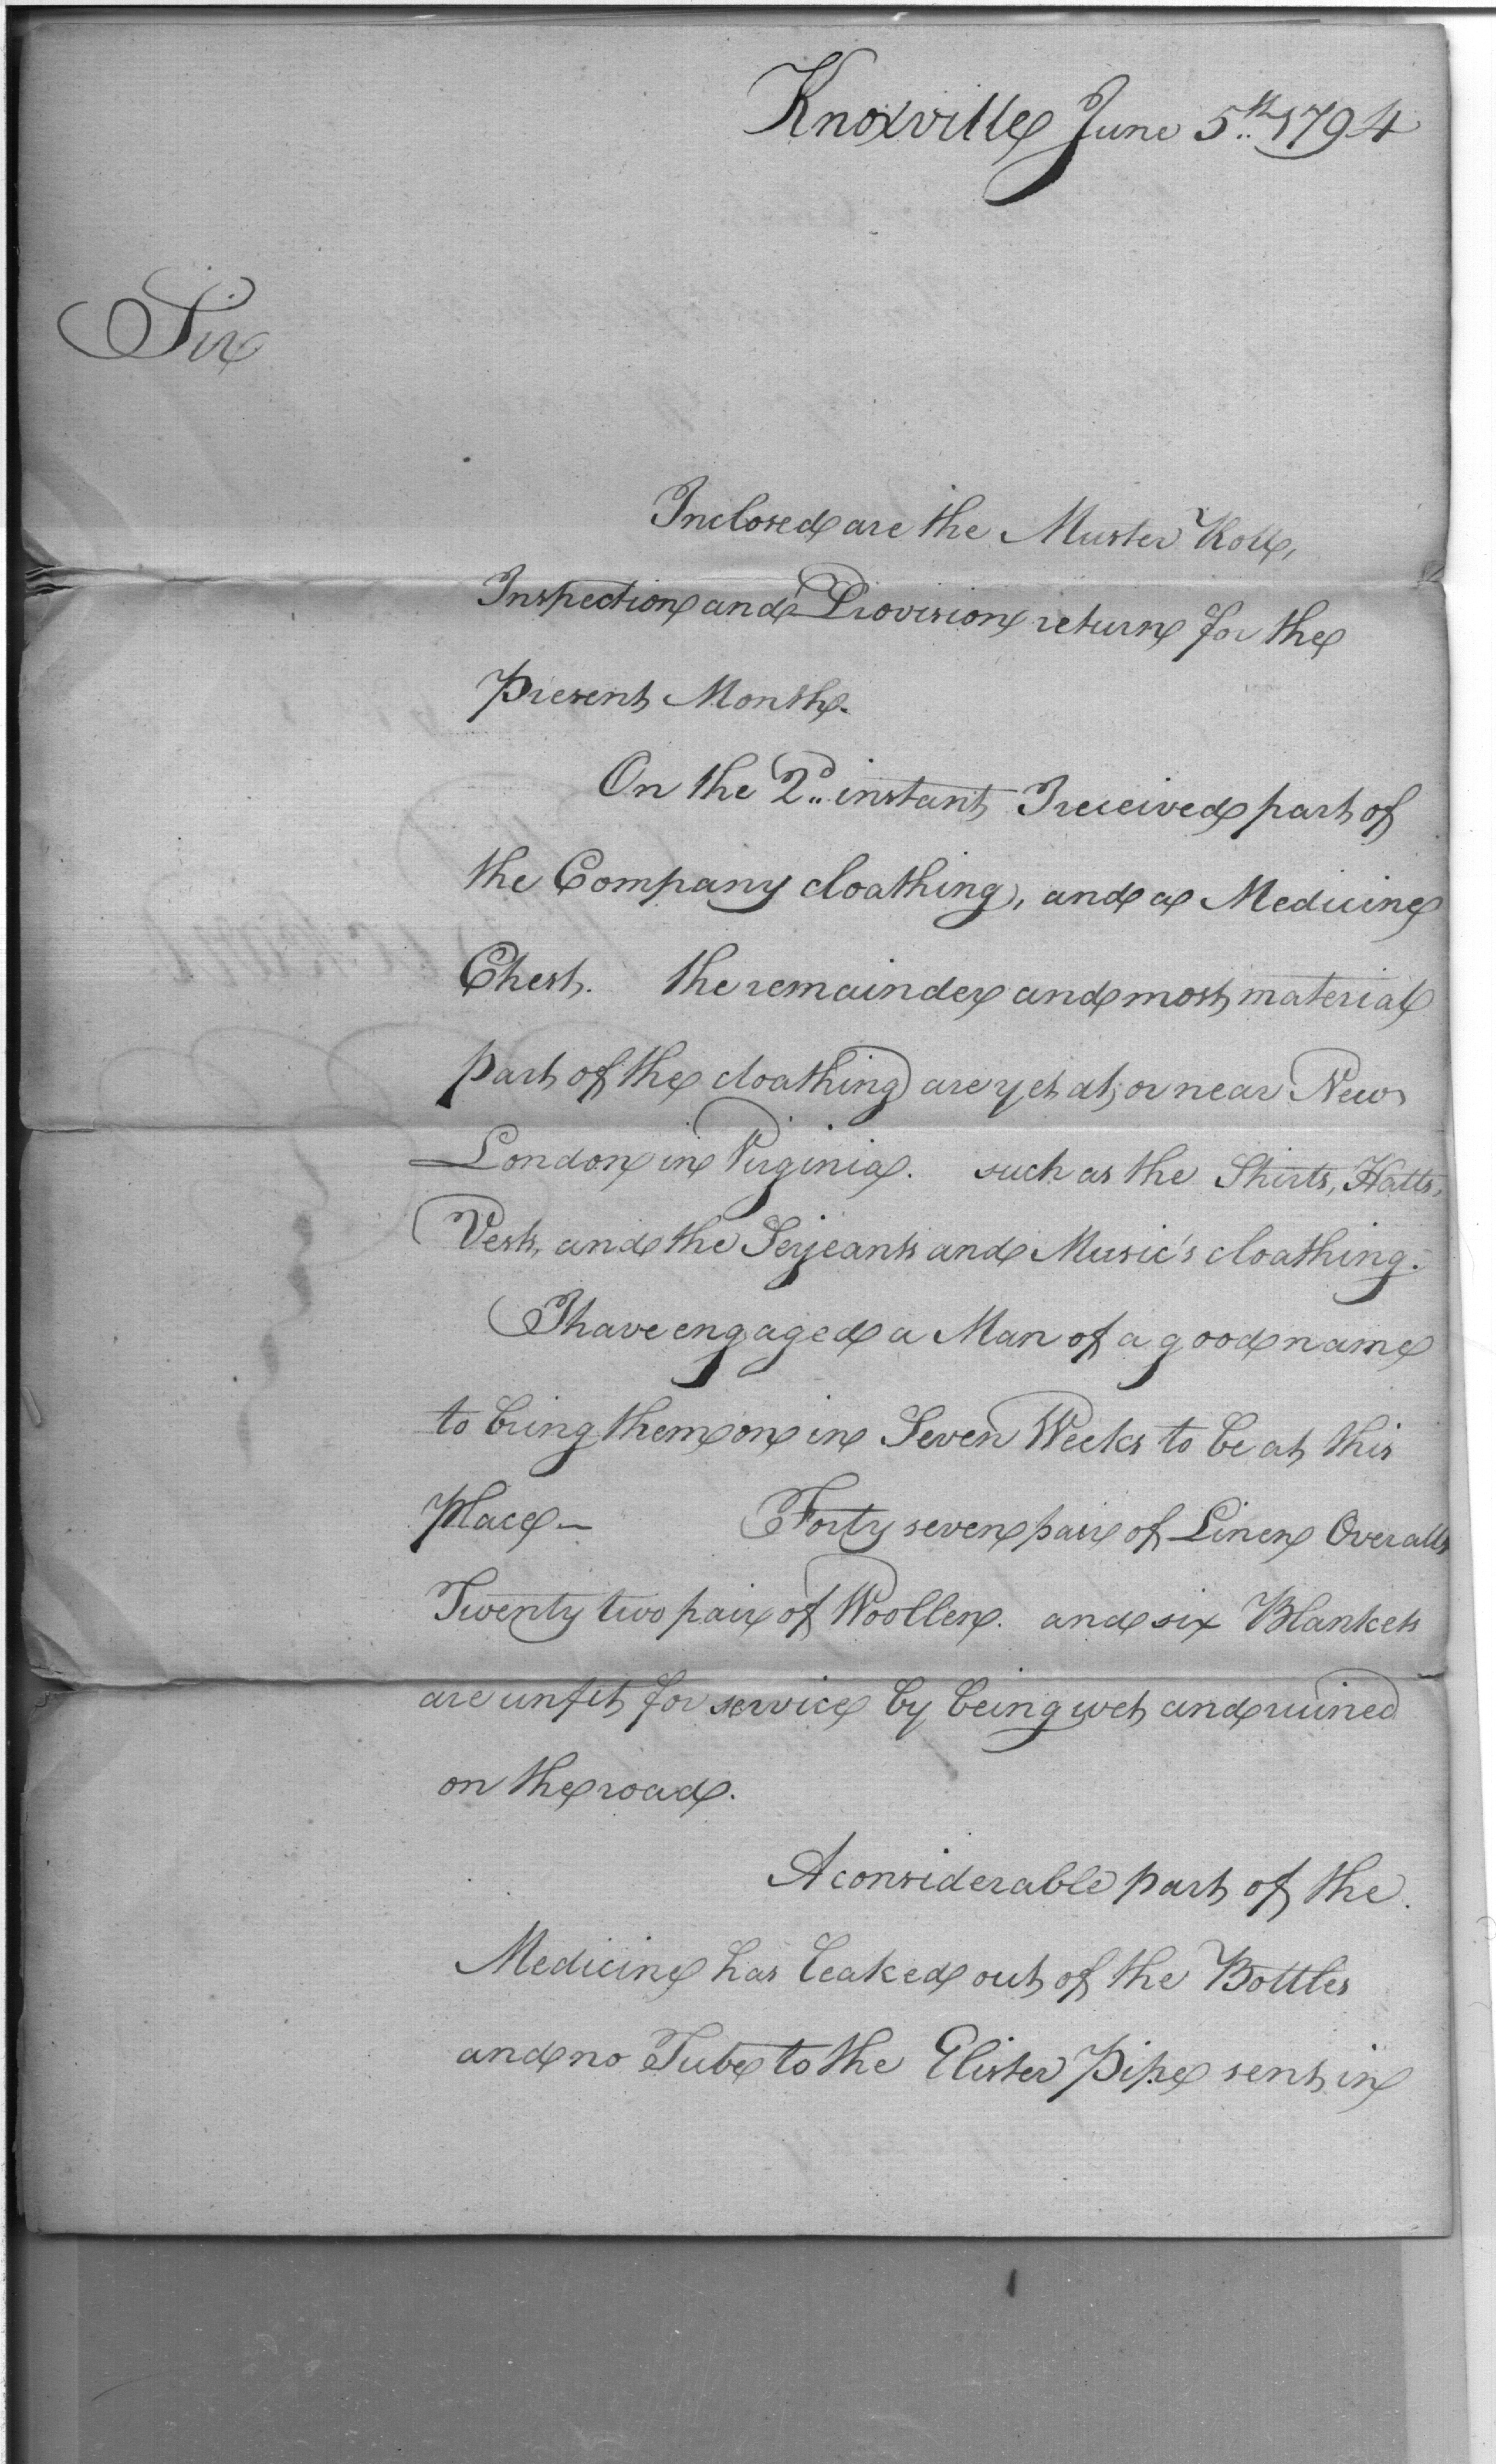 Knoxville June 5th 1794
Sir
Inclosed are the Muster Roll,
Inspection and Provision return for the
Present Month.
On the 2d instant I received part of
the Company cloathing, and a Medicine
Chest. the remainder and most material
part of the cloathing are yet at, or near New
London in Virginia. such as the Shirts, Hatts,
Vests, and the Serjeants and Music's cloathing.
I have engaged a Man of a good name
to bring them on in Seven Weeks to be at this
Place —
Forty seven pair of Linen Overalls
Twenty two pair of Woollen. and six Blankets
are unfit for service by being wet and ruined
on the road.
A considerable part of the
Medicine has leaked out of the Bottles
and no Tube to the Clister Pipe sent in